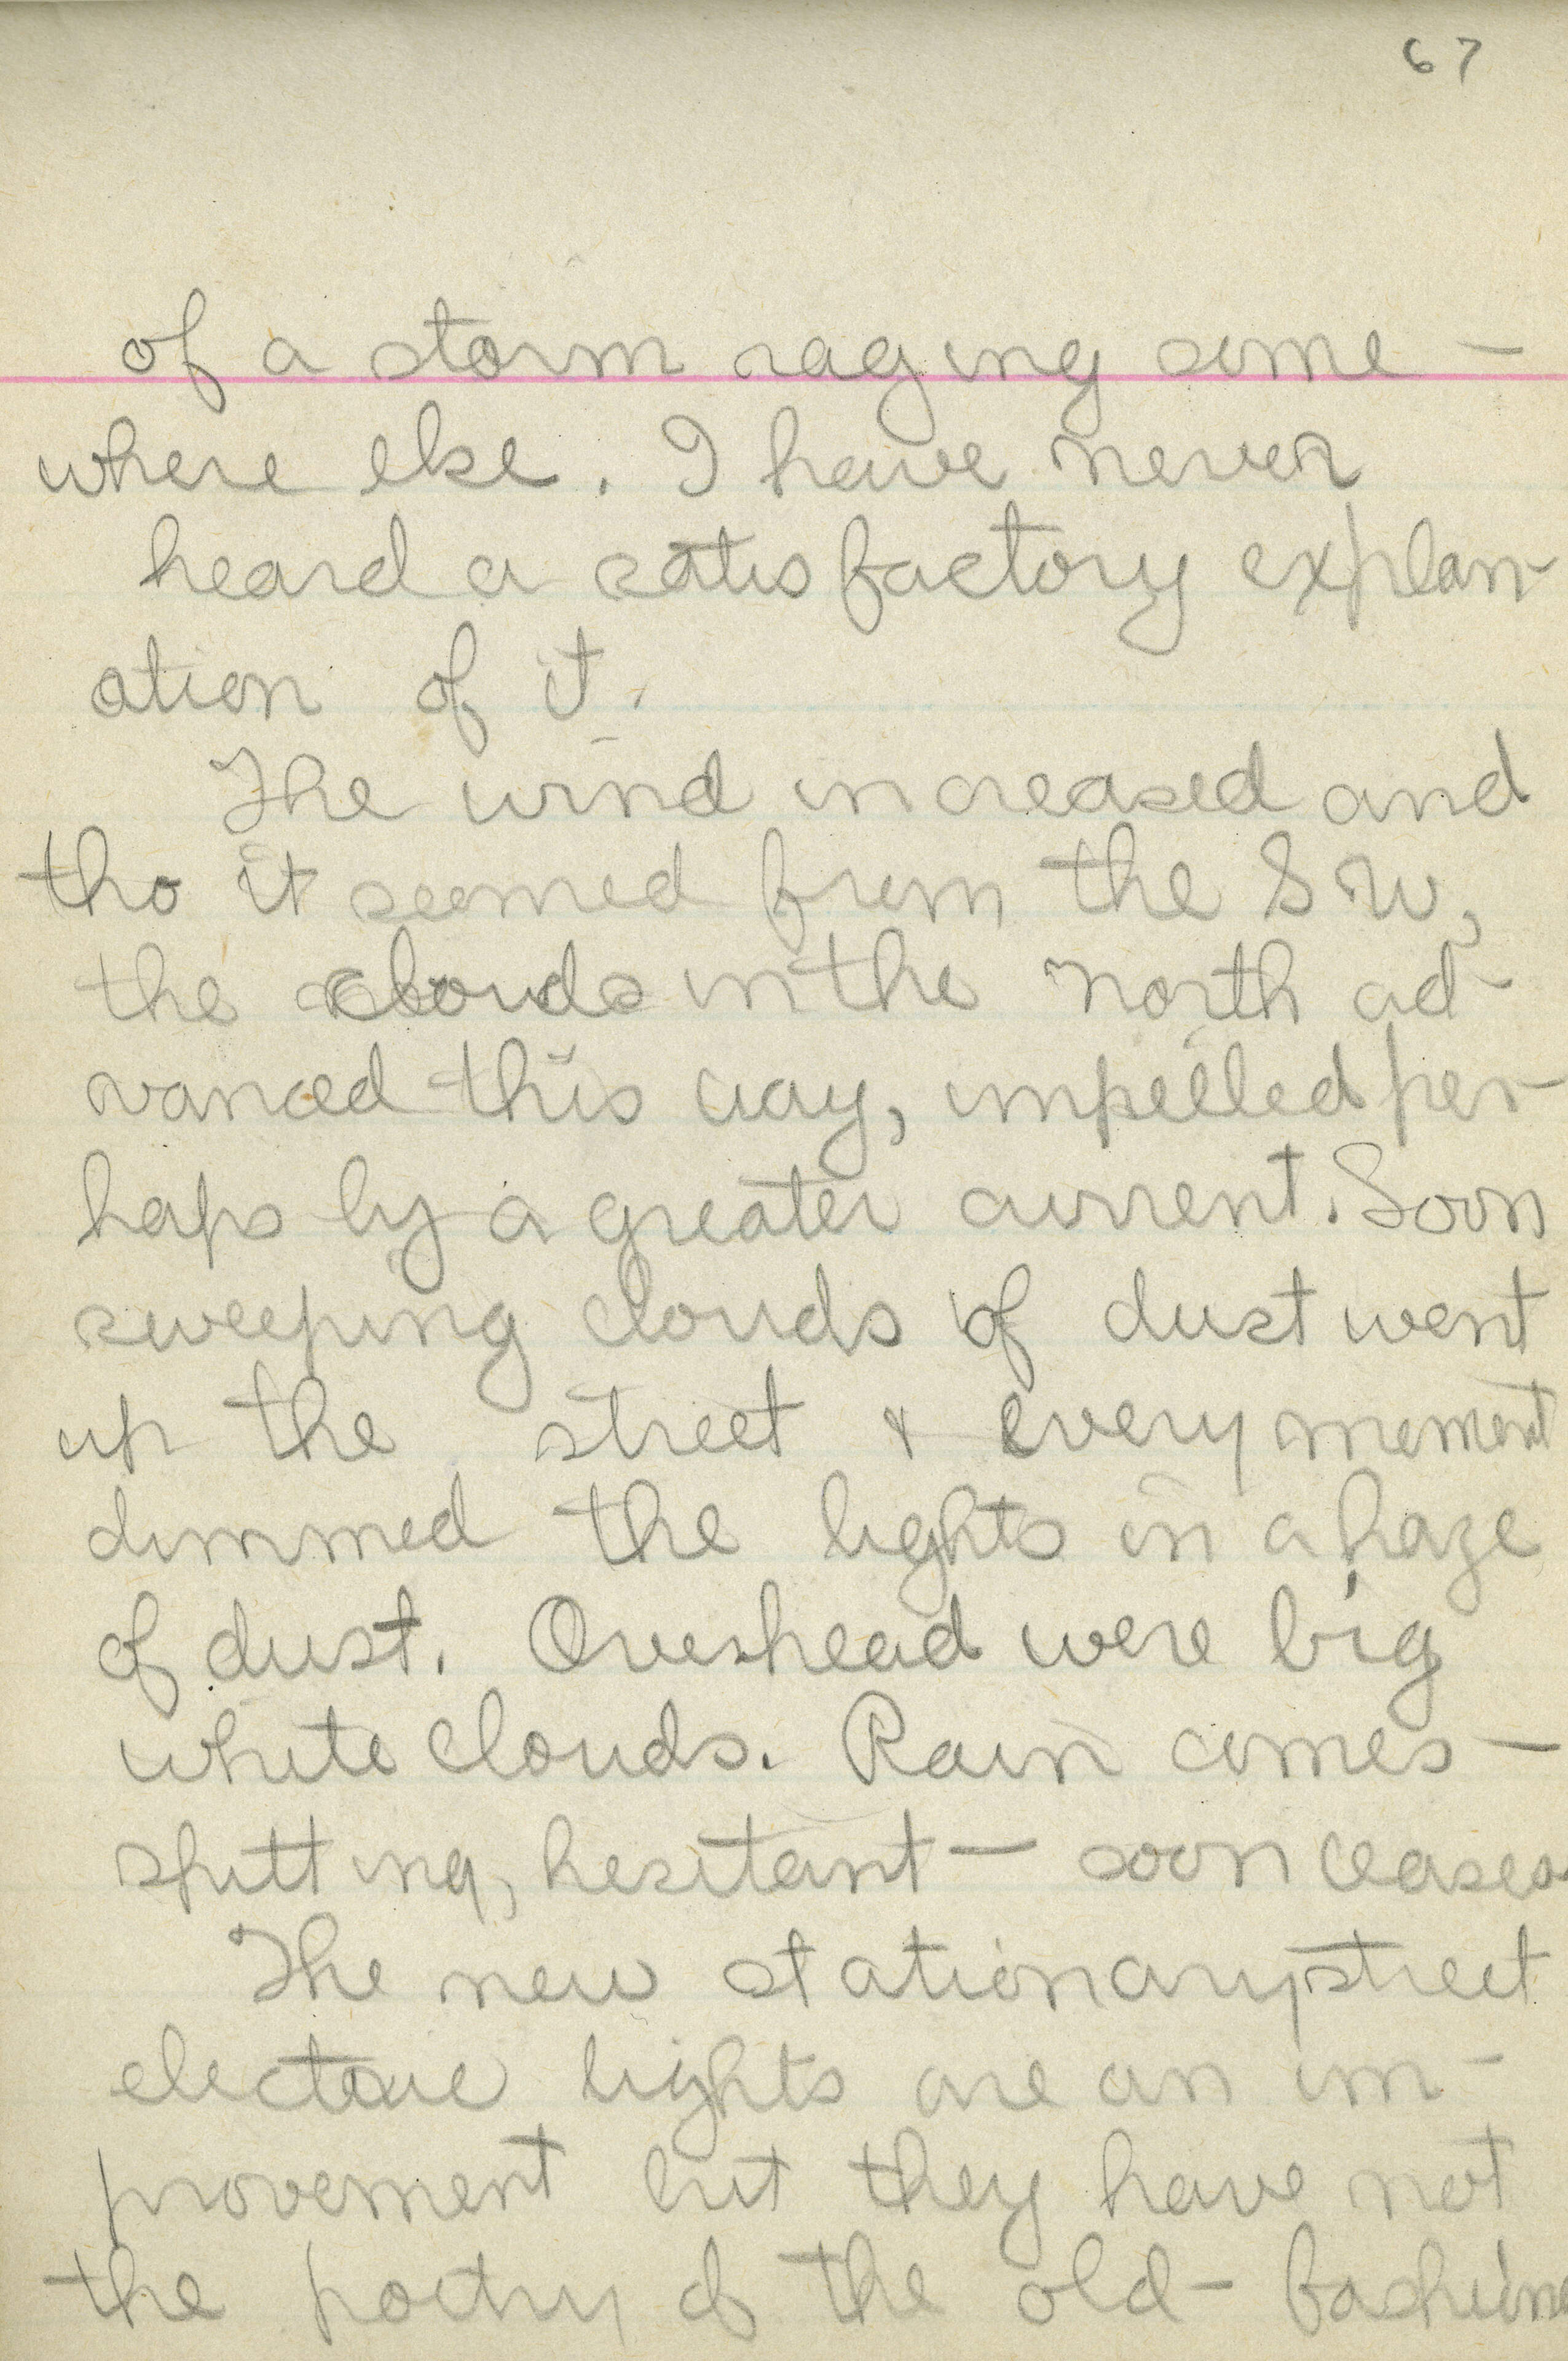 67
of a storm raging some-
where else. I have never
heard a satisfactory explan-
ation of it.
The wind increased and
tho it seemed from the SW,
the clouds in the north ad-
vanced this way, impelled per-
haps by a greater current. Soon
sweeping clouds of dust went
up the street & every moment
dimmed the lights in a haze
of dust. Overhead were big
white clouds. Rain comes -
spitting, hesitant - soon ceases
The new stationary street
electric lights are an im-
provement but they have not
the poetry of the old-fashione